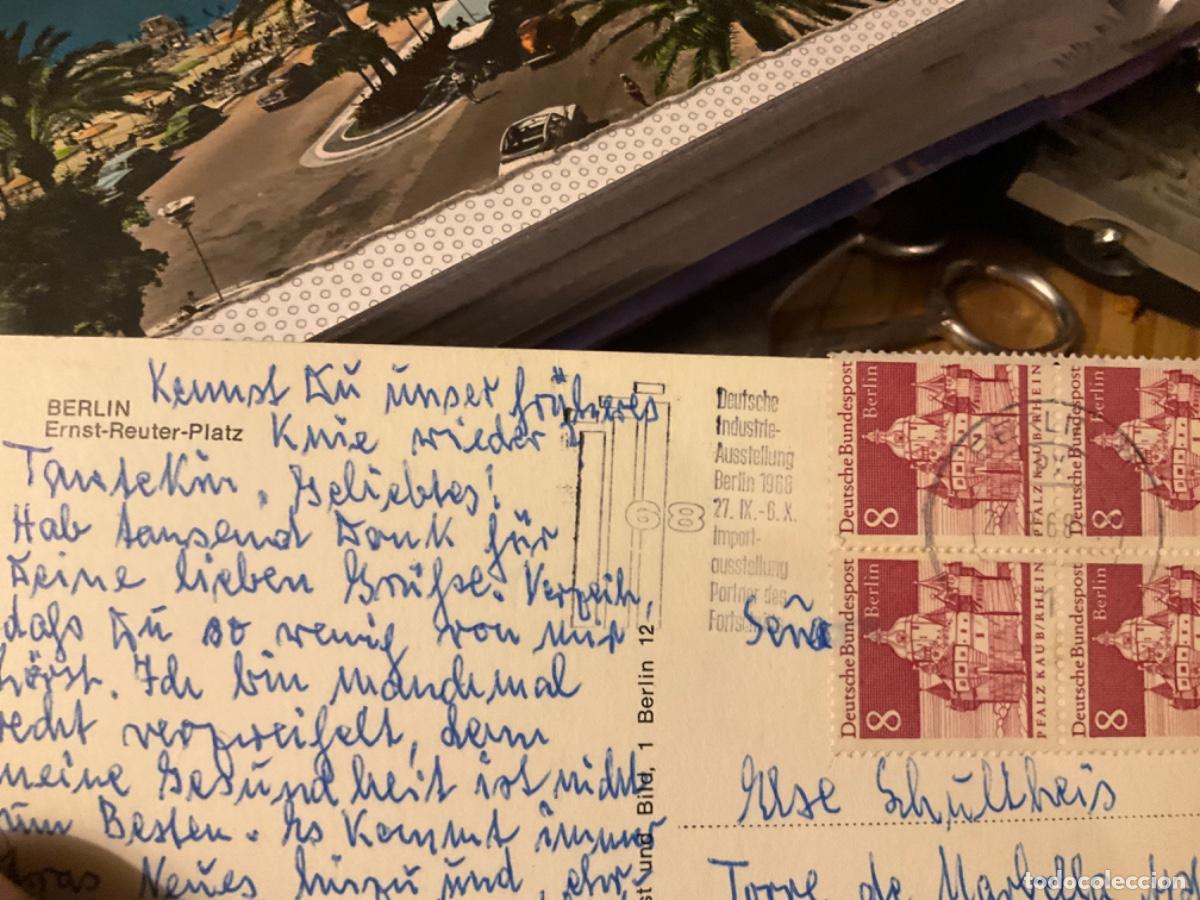 BERLIN
Ernst-Reuter-Platz
Kennst Du unser früheres
Knie wieder
Tantekin, Geliebtes!
Hab tausend Dank für
Deine lieben Grüße. Verzeih,
daß Du so wenig von mir
hörst. Ich bin manchmal
recht verzweifelt, denn
meine Gesundheit ist nicht
zum Besten. Es kommt immer
was Neues hinzu und
Deutsche
Industrie-
Ausstellung
Berlin 1968
27. IX.-6. X.
Import-
ausstellung
Partner des
68
Deutsche Bundespost
Berlin
8
PFALZ KAUB/RHEIN
Deutsche Bundespost
Berlin
8
Deutsche Bundespost
Berlin
8
PFALZ KAUB/RHEIN
Deutsche Bundespost
Berlin
8
und Bild, 1 Berlin 12
Else Schultheis
Torre de Marbella
todocoleccion